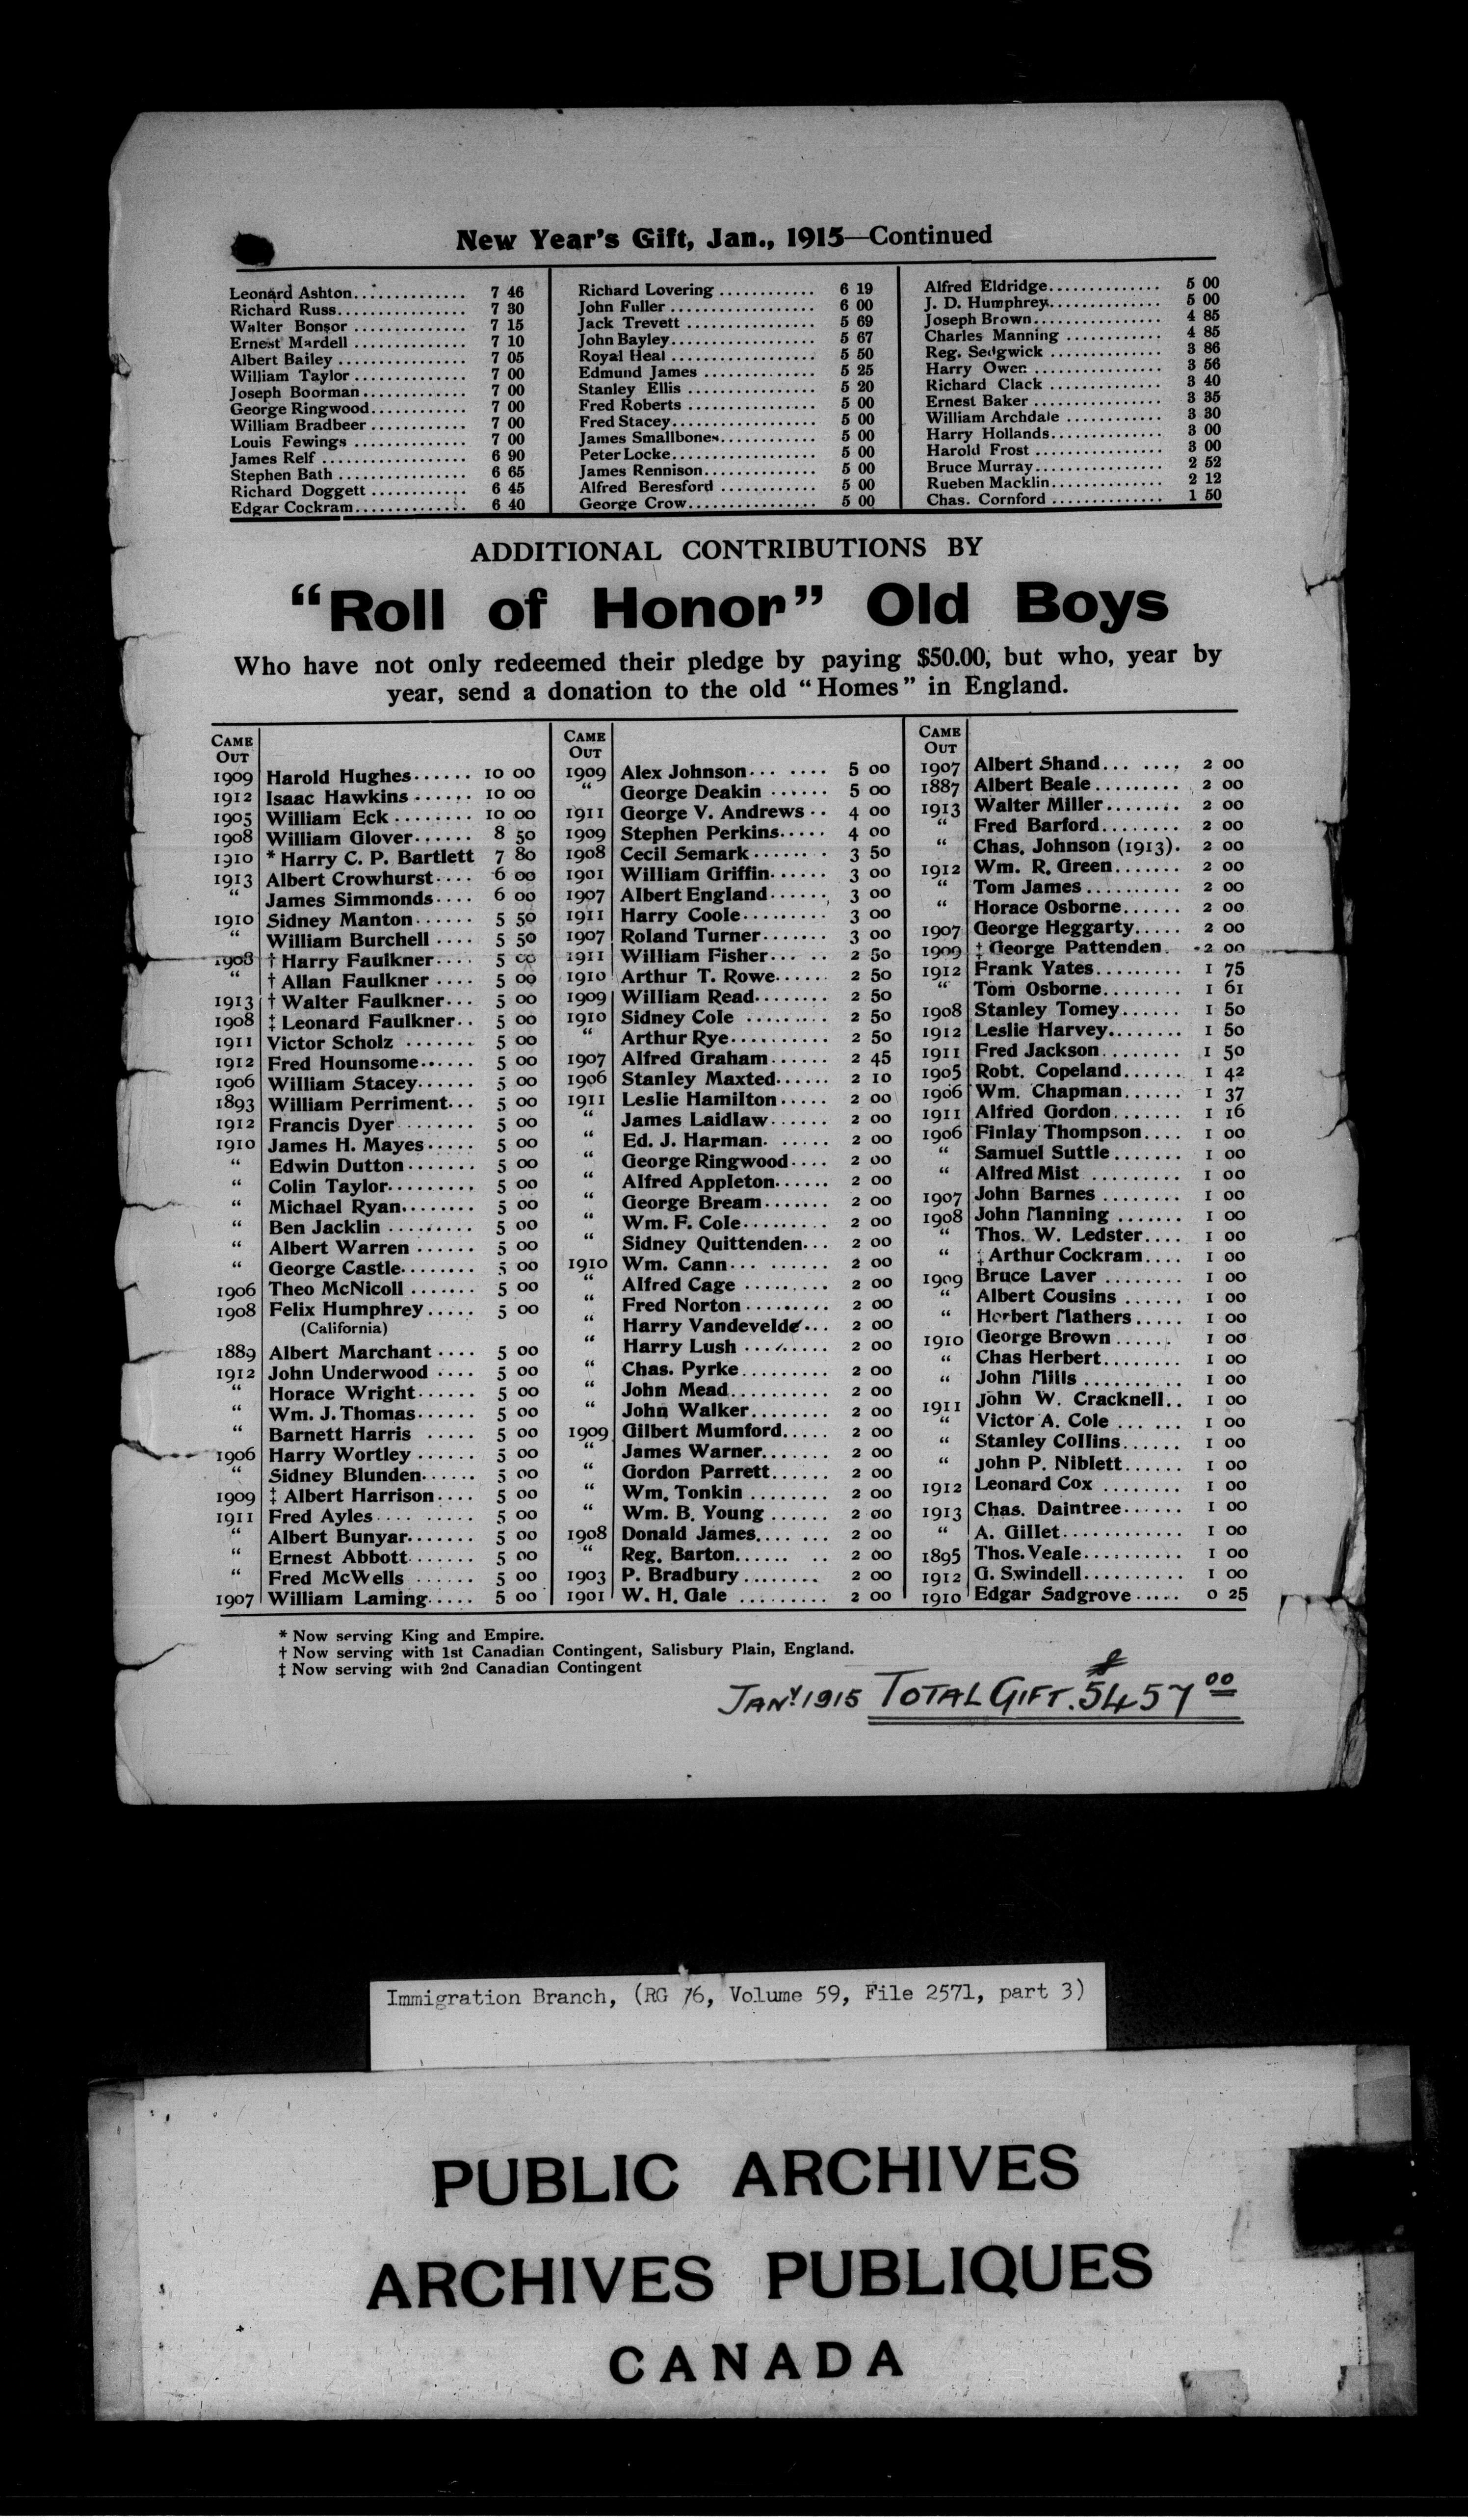 New Year's Gift, Jan., 1915—Continued
Leonard Ashton.............. 7 46
Richard Russ................ 7 30
Walter Bonsor .............. 7 15
Ernest Mardell .............. 7 10
Albert Bailey ................ 7 05
William Taylor .............. 7 00
Joseph Boorman............. 7 00
George Ringwood............ 7 00
William Bradbeer ............ 7 00
Louis Fewings .............. 7 00
James Relf .................. 6 90
Stephen Bath ................ 6 65
Richard Doggett ............ 6 45
Edgar Cockram.............. 6 40
Richard Lovering ............ 6 19
John Fuller .................. 6 00
Jack Trevett ................ 5 69
John Bayley.................. 5 67
Royal Heal .................. 5 50
Edmund James .............. 5 25
Stanley Ellis ................ 5 20
Fred Roberts ................ 5 00
Fred Stacey.................. 5 00
James Smallbones............ 5 00
Peter Locke.................. 5 00
James Rennison.............. 5 00
Alfred Beresford ............ 5 00
George Crow................ 5 00
Alfred Eldridge.............. 5 00
J. D. Humphrey.............. 5 00
Joseph Brown................ 4 85
Charles Manning ............ 4 85
Reg. Sedgwick .............. 3 86
Harry Owen ................ 3 56
Richard Clack .............. 3 40
Ernest Baker ................ 3 35
William Archdale ............ 3 30
Harry Hollands.............. 3 00
Harold Frost ................ 3 00
Bruce Murray................ 2 52
Rueben Macklin.............. 2 12
Chas. Cornford .............. 1 50
ADDITIONAL CONTRIBUTIONS BY
"Roll of Honor" Old Boys
Who have not only redeemed their pledge by paying $50.00, but who, year by
year, send a donation to the old "Homes" in England.
CAME
OUT
1909 Harold Hughes...... 10 00
1912 Isaac Hawkins ...... 10 00
1905 William Eck ........ 10 00
1908 William Glover...... 8 50
1910 * Harry C. P. Bartlett 7 80
1913 Albert Crowhurst.... 6 00
" James Simmonds.... 6 00
1910 Sidney Manton...... 5 50
" William Burchell .... 5 50
1908 † Harry Faulkner.... 5 00
" † Allan Faulkner .... 5 00
1913 † Walter Faulkner... 5 00
1908 ‡ Leonard Faulkner.. 5 00
1911 Victor Scholz ....... 5 00
1912 Fred Hounsome...... 5 00
1906 William Stacey...... 5 00
1893 William Perriment... 5 00
1912 Francis Dyer ........ 5 00
1910 James H. Mayes..... 5 00
" Edwin Dutton....... 5 00
" Colin Taylor......... 5 00
" Michael Ryan........ 5 00
" Ben Jacklin ......... 5 00
" Albert Warren ...... 5 00
" George Castle........ 5 00
1906 Theo McNicoll ....... 5 00
1908 Felix Humphrey..... 5 00
(California)
1889 Albert Marchant .... 5 00
1912 John Underwood .... 5 00
" Horace Wright...... 5 00
" Wm. J. Thomas...... 5 00
" Barnett Harris ..... 5 00
1906 Harry Wortley ...... 5 00
" Sidney Blunden...... 5 00
1909 ‡ Albert Harrison.... 5 00
1911 Fred Ayles.... ..... 5 00
" Albert Bunyar....... 5 00
" Ernest Abbott....... 5 00
" Fred McWells ...... 5 00
1907 William Laming..... 5 00
CAME
OUT
1909 Alex Johnson... .... 5 00
" George Deakin ...... 5 00
1911 George V. Andrews .. 4 00
1909 Stephen Perkins..... 4 00
1908 Cecil Semark ....... 3 50
1901 William Griffin...... 3 00
1907 Albert England...... 3 00
1911 Harry Coole......... 3 00
1907 Roland Turner....... 3 00
1911 William Fisher... .. 2 50
1910 Arthur T. Rowe...... 2 50
1909 William Read........ 2 50
1910 Sidney Cole ......... 2 50
" Arthur Rye.......... 2 50
1907 Alfred Graham...... 2 45
1906 Stanley Maxted...... 2 10
1911 Leslie Hamilton..... 2 00
" James Laidlaw...... 2 00
" Ed. J. Harman. ..... 2 00
" George Ringwood.... 2 00
" Alfred Appleton...... 2 00
" George Bream....... 2 00
" Wm. F. Cole......... 2 00
" Sidney Quittenden... 2 00
1910 Wm. Cann... ...... 2 00
" Alfred Cage ......... 2 00
" Fred Norton ......... 2 00
" Harry Vandevelde... 2 00
" Harry Lush ......... 2 00
" Chas. Pyrke......... 2 00
" John Mead.......... 2 00
" John Walker........ 2 00
1909 Gilbert Mumford..... 2 00
" James Warner....... 2 00
" Gordon Parrett...... 2 00
" Wm. Tonkin ........ 2 00
" Wm. B. Young ...... 2 00
1908 Donald James.... ... 2 00
" Reg. Barton...... .. 2 00
1903 P. Bradbury ........ 2 00
1901 W. H. Gale ......... 2 00
CAME
OUT
1907 Albert Shand... .... 2 00
1887 Albert Beale......... 2 00
1913 Walter Miller........ 2 00
" Fred Barford........ 2 00
" Chas. Johnson (1913). 2 00
1912 Wm. R. Green....... 2 00
" Tom James .......... 2 00
" Horace Osborne...... 2 00
1907 George Heggarty..... 2 00
1909 ‡ George Pattenden. 2 00
1912 Frank Yates......... 1 75
" Tom Osborne........ 1 61
1908 Stanley Tomey...... 1 50
1912 Leslie Harvey....... 1 50
1911 Fred Jackson........ 1 50
1905 Robt. Copeland...... 1 42
1906 Wm. Chapman...... 1 37
1911 Alfred Gordon....... 1 16
1906 Finlay Thompson.... 1 00
" Samuel Suttle....... 1 00
" Alfred Mist ......... 1 00
1907 John Barnes ........ 1 00
1908 John Manning ....... 1 00
" Thos. W. Ledster.... 1 00
" ‡ Arthur Cockram.... 1 00
1909 Bruce Laver ........ 1 00
" Albert Cousins ...... 1 00
" Herbert Mathers..... 1 00
1910 George Brown ...... 1 00
" Chas Herbert........ 1 00
" John Mills .......... 1 00
1911 John W. Cracknell.. 1 00
" Victor A. Cole ... ... 1 00
" Stanley Collins...... 1 00
" John P. Niblett...... 1 00
1912 Leonard Cox ........ 1 00
1913 Chas. Daintree...... 1 00
" A. Gillet............ 1 00
1895 Thos. Veale.......... 1 00
1912 G. Swindell.......... 1 00
1910 Edgar Sadgrove ..... 0 25
* Now serving King and Empire.
† Now serving with 1st Canadian Contingent, Salisbury Plain, England.
‡ Now serving with 2nd Canadian Contingent
JANY 1915 TOTAL GIFT. $5457 00
Immigration Branch, (RG 76, Volume 59, File 2571, part 3)
PUBLIC ARCHIVES
ARCHIVES PUBLIQUES
CANADA